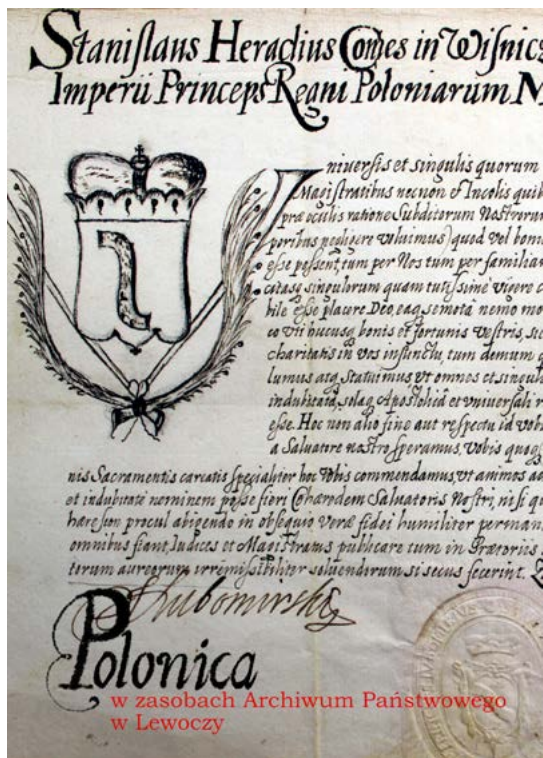 Stanislaus Heraclius Comes in Wisnicz
Imperii Princeps Regni Poloniarum M
niversis et singulis quorum
Magistratibus necnon & Incolis quib
præ oculis ratione Subditorum Nostrorum
poribus negligere voluimus) quod vel bono
esse possent, tum per Nos tum per familiar
singulorum quam tutissime vigere c
bile esse placere Deo, eaq semota nemo mo
co vti hucusq bonis et fortunis vestris, sic
charitatis in vos tum demum q
lumus atq Statuimus vt omnes et singuli
solaq Apostolica et vniversali r
esse. Hoc non alio fine aut respectu id vob
a Salvatore nostro speramus, vobis quoq
nis Sacramentis specialiter hoc Vobis commendamus, vt animos ad
et indubitate neminem posse fieri Cohæredem Salvatoris Nostri, nisi qu
hæresion procul abigendo in obsequio veræ fidei humiliter perman
omnibus fiant, Iudices et Magistratus publicare tum in Prætoriis
aureorum irremissibiliter si secus fecerint.
Lubomirski
Polonica
w zasobach Archiwum Państwowego
w Lewoczy